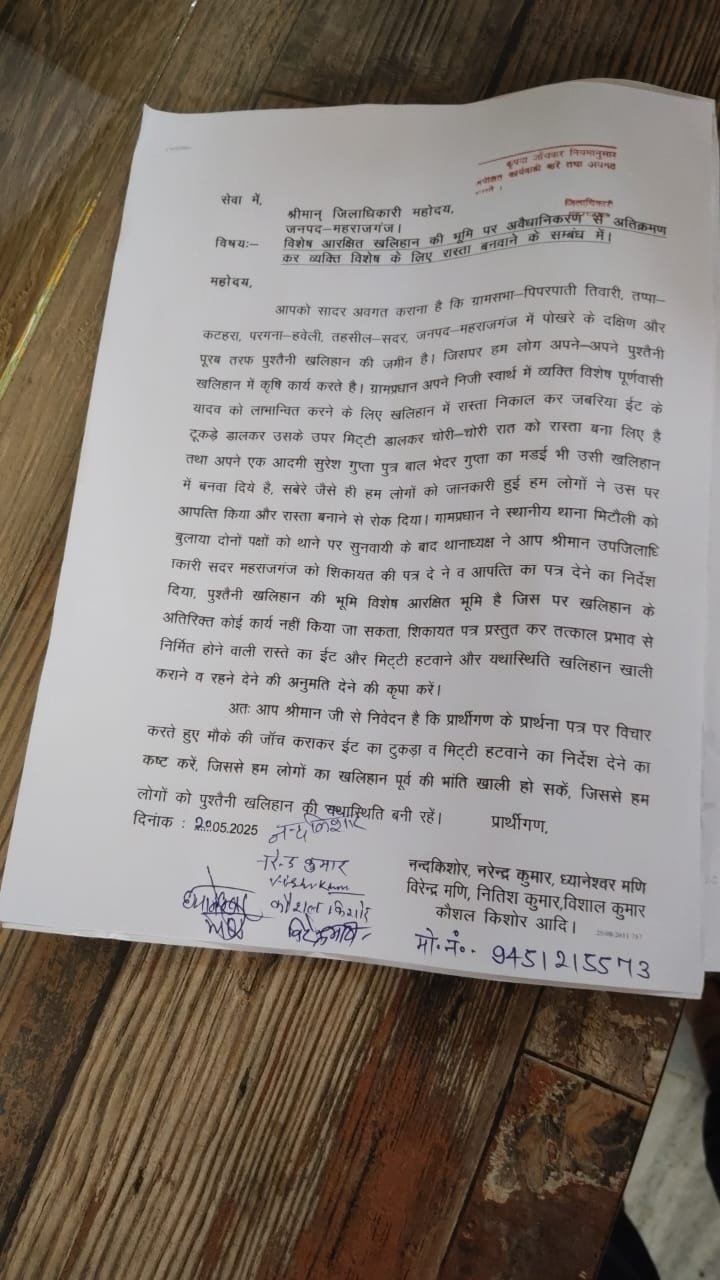 कृपया जाँचकर नियमानुसार
अपेक्षित कार्यवाही करें तथा अवगत
जिलाधिकारी
सेवा में,
श्रीमान् जिलाधिकारी महोदय,
जनपद–महराजगंज।
विषयः– विशेष आरक्षित खलिहान की भूमि पर अवैधानिकरण से अतिक्रमण
कर व्यक्ति विशेष के लिए रास्ता बनवाने के सम्बंध में।
महोदय,
आपको सादर अवगत कराना है कि ग्रामसभा–पिपरपाती तिवारी, तप्पा–
कटहरा, परगना–हवेली, तहसील–सदर, जनपद–महराजगंज में पोखरे के दक्षिण और
पूरब तरफ पुश्तैनी खलिहान की जमीन है। जिसपर हम लोग अपने–अपने पुश्तैनी
खलिहान में कृषि कार्य करते है। ग्रामप्रधान अपने निजी स्वार्थ में व्यक्ति विशेष पूर्णवासी
यादव को लाभान्वित करने के लिए खलिहान में रास्ता निकाल कर जबरिया ईट के
टूकड़े डालकर उसके उपर मिट्टी डालकर चोरी–चोरी रात को रास्ता बना लिए है
तथा अपने एक आदमी सुरेश गुप्ता पुत्र बाल भेदर गुप्ता का मडई भी उसी खलिहान
में बनवा दिये है, सबेरे जैसे ही हम लोगों को जानकारी हुई हम लोगों ने उस पर
आपत्ति किया और रास्ता बनाने से रोक दिया। गामप्रधान ने स्थानीय थाना भिटौली को
बुलाया दोनों पक्षों को थाने पर सुनवायी के बाद थानाध्यक्ष ने आप श्रीमान उपजिलाधि
ाकारी सदर महराजगंज को शिकायत की पत्र दे ने व आपत्ति का पत्र देने का निर्देश
दिया, पुश्तैनी खलिहान की भूमि विशेष आरक्षित भूमि है जिस पर खलिहान के
अतिरिक्त कोई कार्य नहीं किया जा सकता, शिकायत पत्र प्रस्तुत कर तत्काल प्रभाव से
निर्मित होने वाली रास्ते का ईट और मिट्टी हटवाने और यथास्थिति खलिहान खाली
कराने व रहने देने की अनुमति देने की कृपा करें।
अतः आप श्रीमान जी से निवेदन है कि प्रार्थीगण के प्रार्थना पत्र पर विचार
करते हुए मौके की जॉच कराकर ईट का टुकड़ा व मिट्टी हटवाने का निर्देश देने का
कष्ट करें, जिससे हम लोगों का खलिहान पूर्व की भांति खाली हो सकें, जिससे हम
लोगों को पुश्तैनी खलिहान की यथास्थिति बनी रहें।
प्रार्थीगण,
दिनांक : 20.05.2025
नन्दकिशोर
नरेन्द्र कुमार
कौशल किशोर
नन्दकिशोर, नरेन्द्र कुमार, ध्यानेश्वर मणि
विरेन्द्र मणि, नितिश कुमार,विशाल कुमार
कौशल किशोर आदि।
मो॰ नं॰. 9451215573